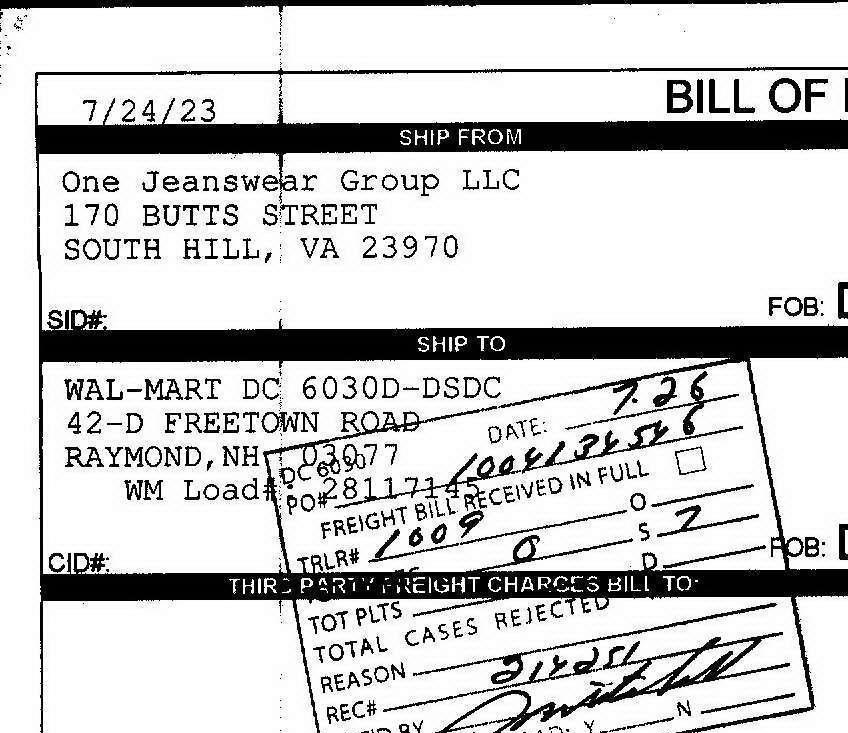 7/24/23
BILL OF
SHIP FROM
One Jeanswear Group LLC
170 BUTTS STREET
SOUTH HILL, VA 23970
SID#:
FOB:
SHIP TO
WAL-MART DC 6030D-DSDC
42-D FREETOWN ROAD
RAYMOND,NH 03077
WM Load#: 28117145
CID#:
FOB:
THIRD PARTY FREIGHT CHARGES BILL TO:
DC 6030
DATE: 7.26
PO# 1004134546
FREIGHT BILL RECEIVED IN FULL
TRLR# 1009
O
S 7
D
0
TOT PLTS
TOTAL CASES REJECTED
REASON
REC# 214251
BY
Y N